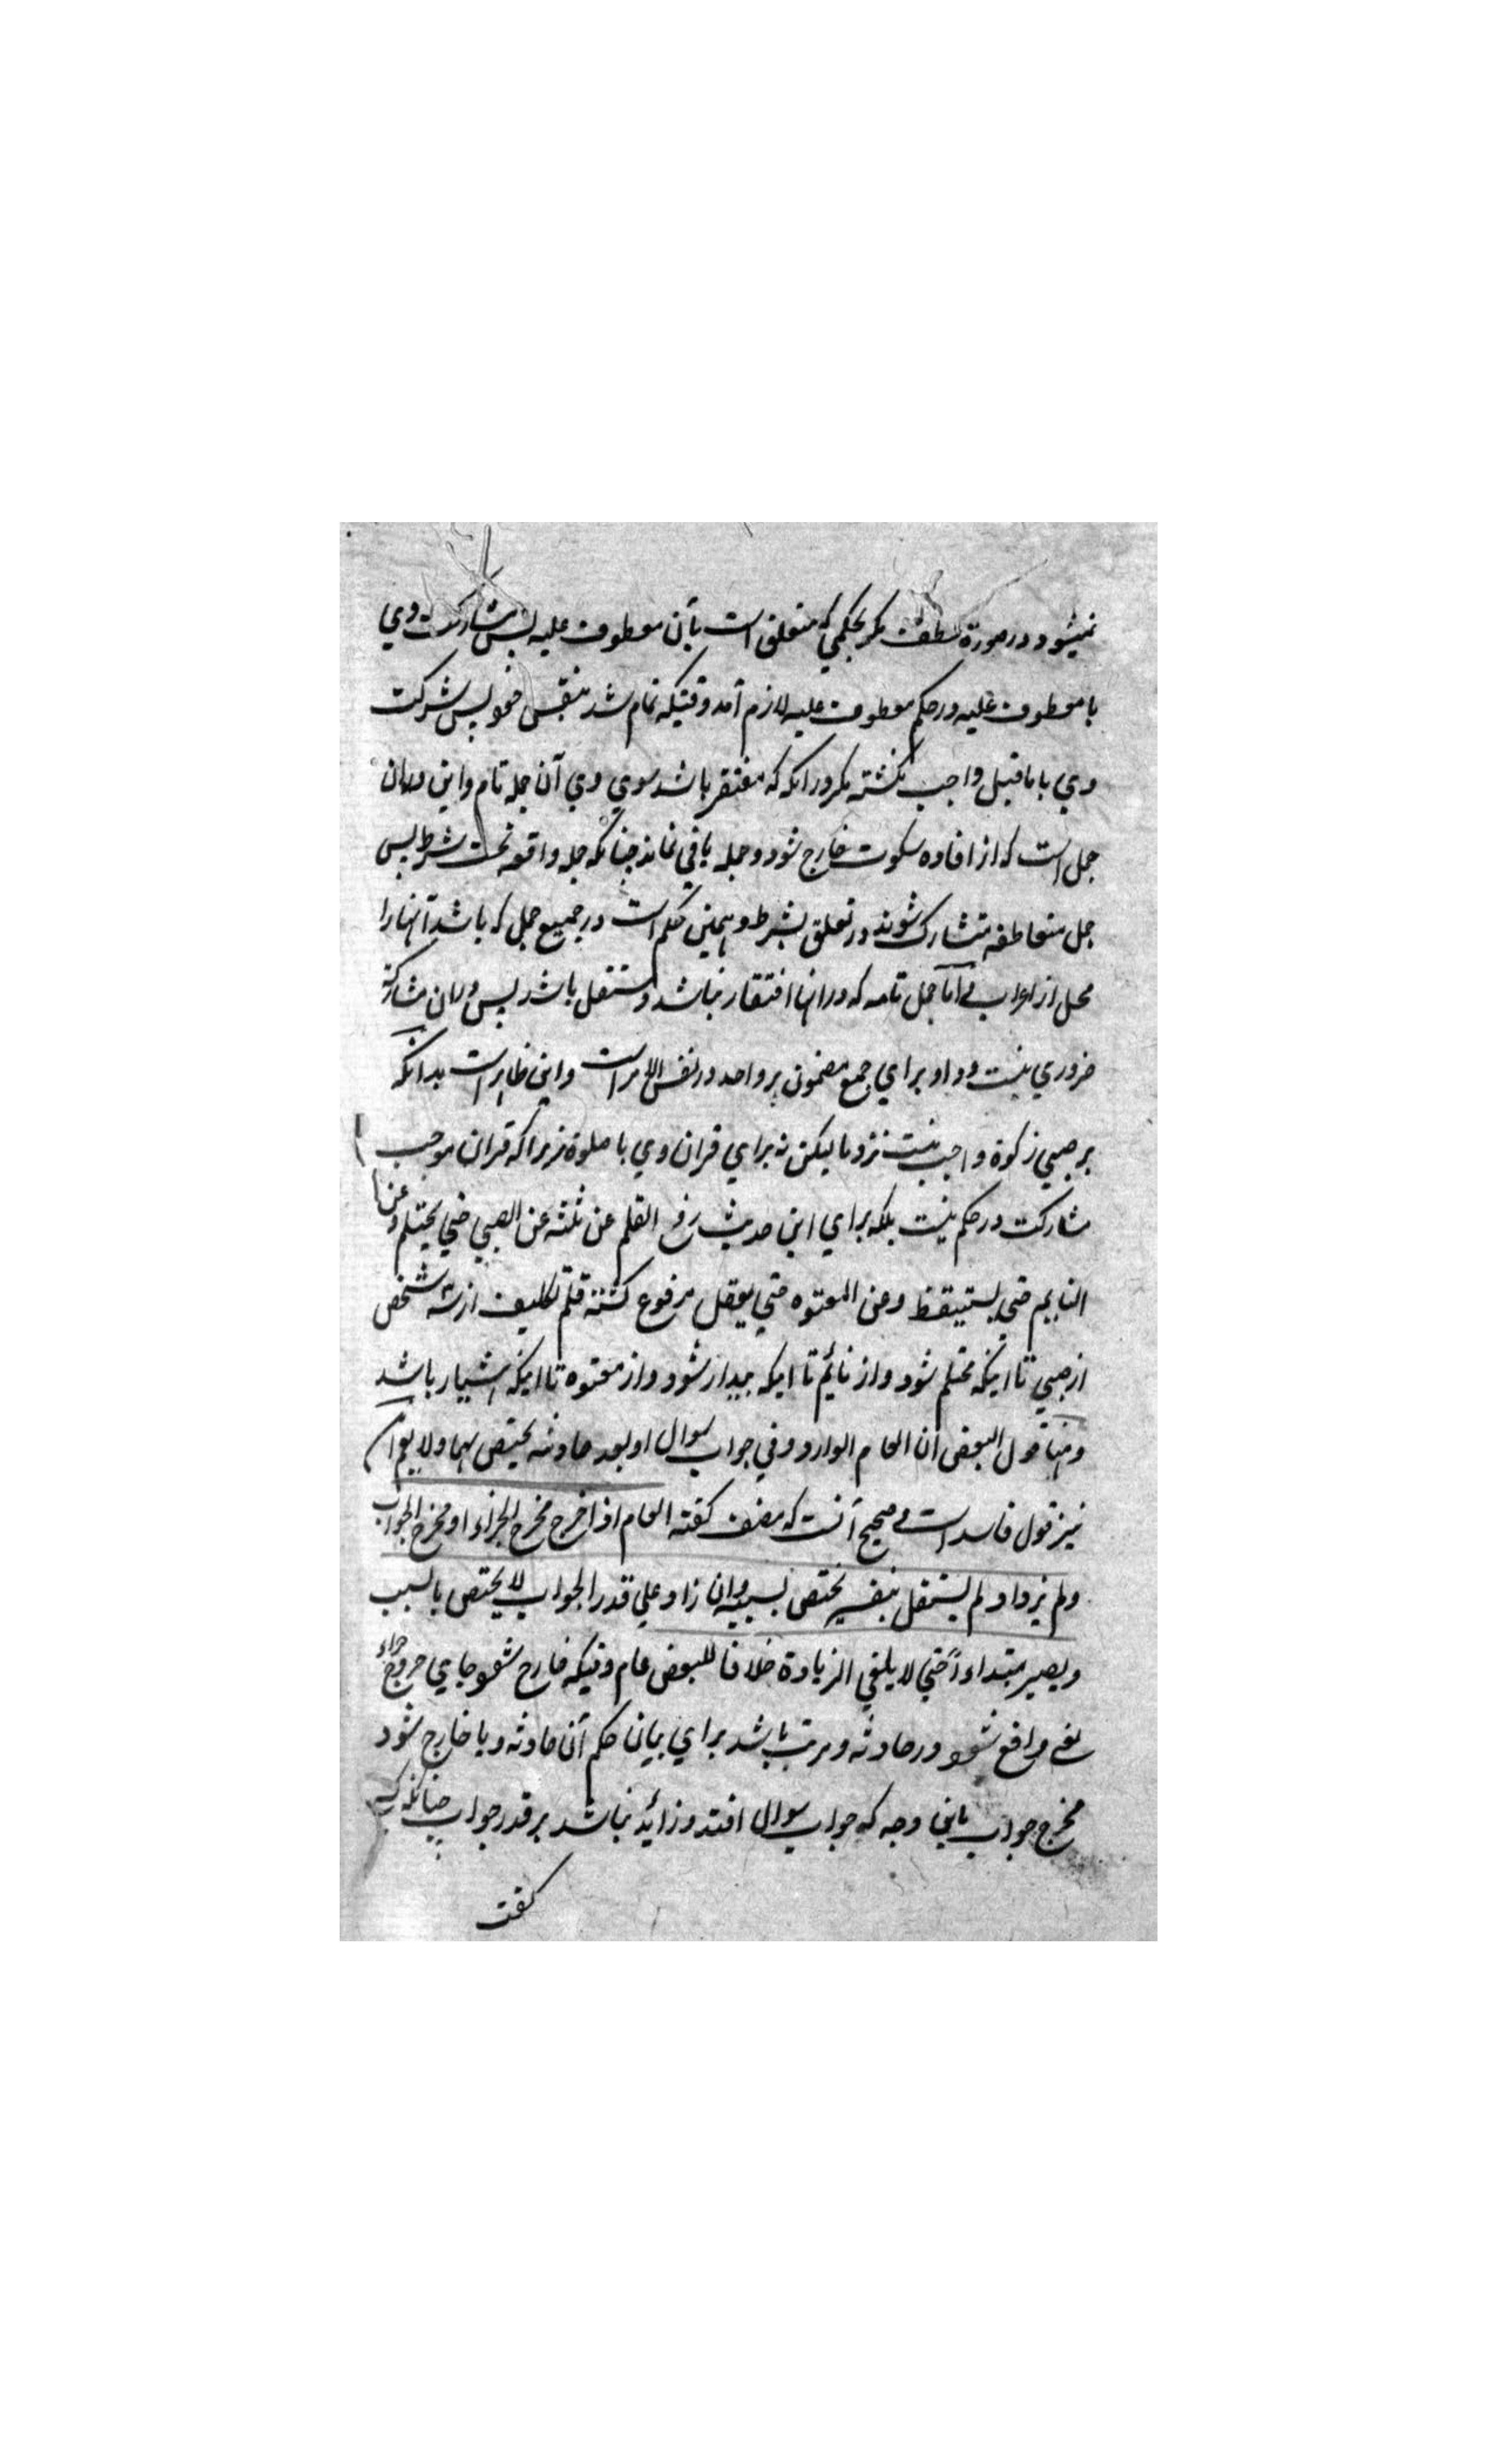 نمیشود در صورة عطف مکر بحکمی که متعلق است بآن معطوف علیه پس مشارکت وی
با معطوف علیه در حکم معطوف علیه لازم آمد وقتیکه تمام شد بنفس خود پس شرکت
وی با ماقبل واجب نکشته مکر در انکه که مفتقر باشد سوی وی آن جمله تام و این در ان
جمل است که از افاده سکوت خارج شود و جمله باقی نماند چنانکه جمله واقعه تحت شرط پس
جمل متعاطفه متشارک شوند در تعلق بشرط و همین حکم است در جمیع جمل که باشد آنها را
محل از اعراب اما جمل تامه که در انها افتقار نباشد و مستقل باشد پس در ان مشارکة
ضروری نیست و واو برای جمع مضمون هر واحد در نفس الامر است و این ظاهر است بدانکه
بر صبی زکوة واجب نیست نزد ما لیکن نه برای قران وی با صلوة زیرا که قران موجب
مشارکت در حکم نیست بلکه برای این حدیث رفع القلم عن ثلثه عن الصبی حتی یحتلم وعن
النایم حتی یستیقظ وعن المعتوه حتی یعقل مرفوع کشته قلم تکلیف از سه شخص
از صبی تا اینکه محتلم شود و از نائم تا اینکه بیدار شود و از معتوه تا اینکه هشیار باشد
ومنها قول البعض ان العام الوارد فی جواب سوال او بعد حادثه یختص بهما ولا یعم این
نیز قول فاسد است صحیح آنست که مصنف کفته العام اذا خرج مخرج الجزاء او مخرج الجواب
ولم یزد او لم یستقل بنفسه یختص بسببه وان زاد علی قدر الجواب لا یختص بالسبب
ویصیر مبتداءً حتی لا یلغی الزیادة خلافا للبعض عام وقتیکه خارج شود جای خروج جزاء
یعنی واقع شود در حادثه و مرتب باشد برای بیان حکم آن حادثه و یا خارج شود
مخرج جواب باین وجه که جواب سوال افتد و زائد نباشد بر قدر جواب چنانکه کسی
کفت